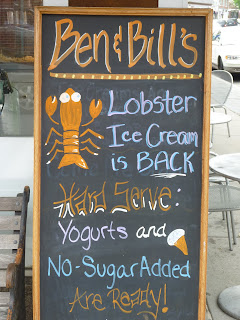 Ben & Bill's
Lobster
Ice Cream
is BACK
Hard Serve:
Yogurts and
No-Sugar Added
Are Ready!